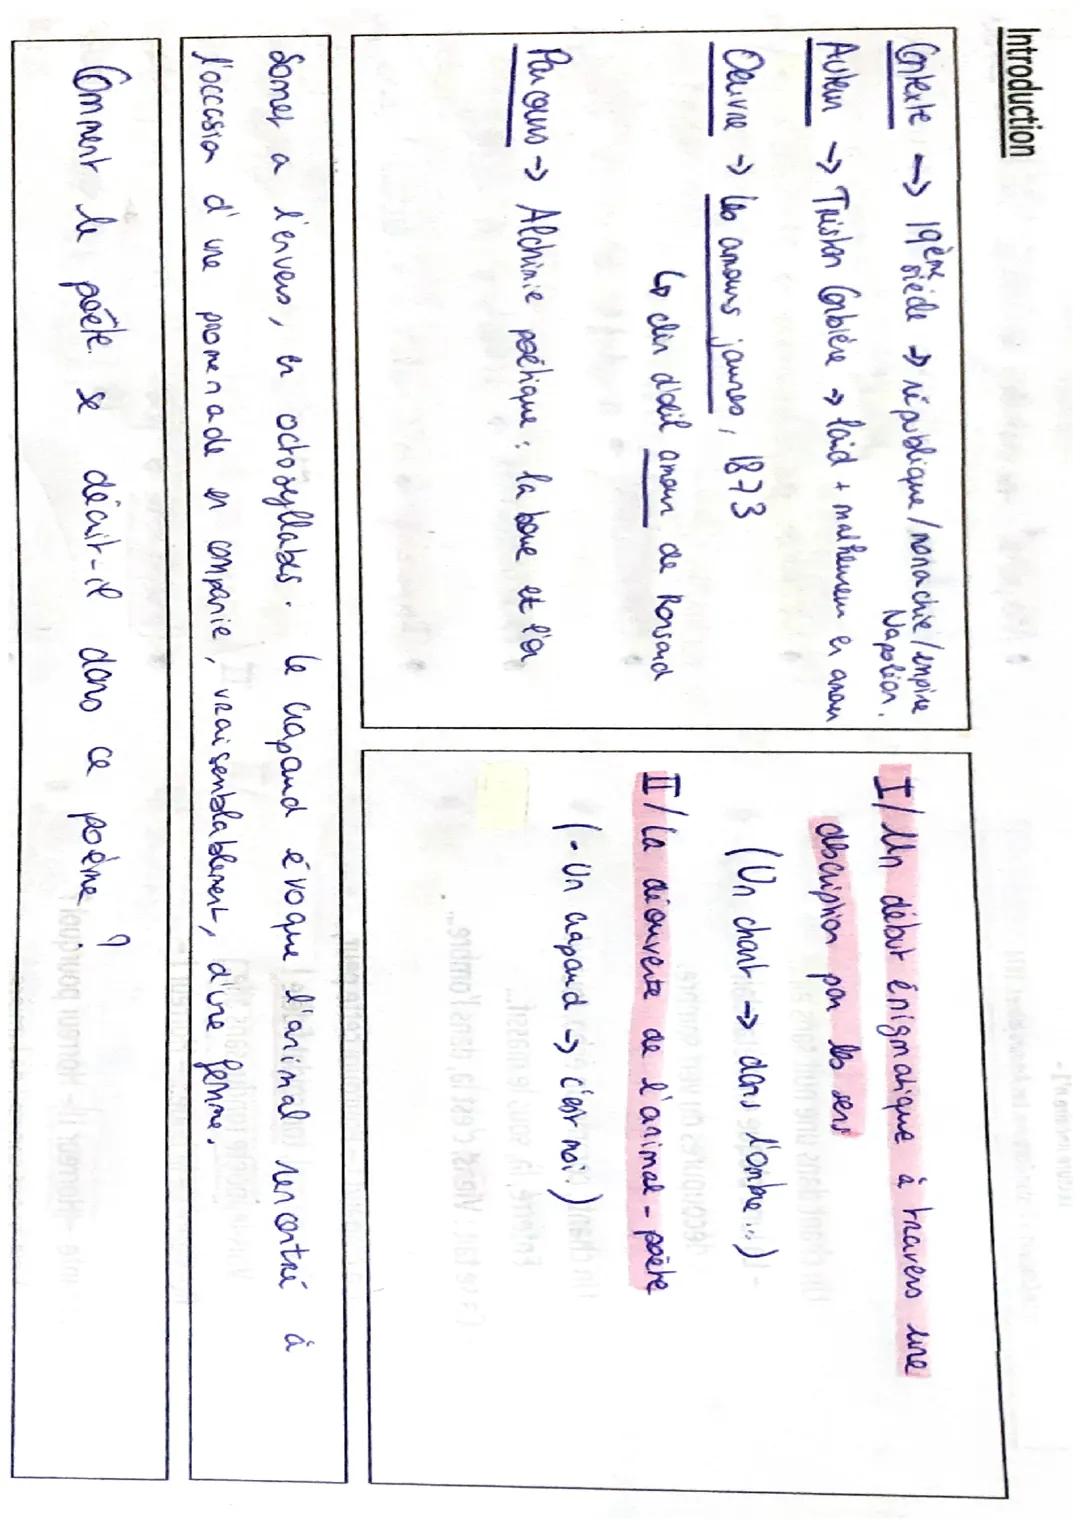 Introduction
Contexte → 19ème siècle → république / monarchie / empire
Napoléon.
Auteur → Tristan Corbière → laid + malheureux en amour
Oeuvre → les amours jaunes, 1873
↳ clin d'oeil amour de Ronsard
Parcours → Alchimie poétique : la boue et l'or
I/ Un début énigmatique à travers une
description par les sens
(Un chant → dans l'ombre...)
II/ La découverte de l'animal - poète
(- Un crapaud → c'est moi)
Sonnet a l'envers, en octosyllabes. Le crapaud évoque l'animal rencontré à
l'occasion d'une promenade en compagnie, vraisemblablement, d'une femme.
Comment le poète se décrit-il dans ce poème ?